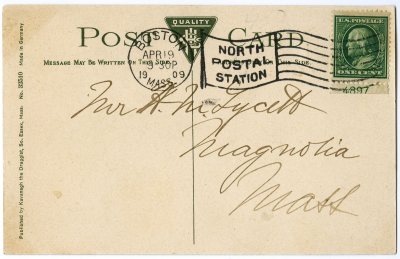 POST CARD
QUALITY
MESSAGE MAY BE WRITTEN ON THIS SIDE.
ON THIS SIDE.
BOSTON
APR 19
3 30P
19 09
MASS.
NORTH
POSTAL
STATION
U.S. POSTAGE
ONE CENT
4897
Mr H.
Magnolia
Mass
Published by Kavanagh the Druggist, So. Essex, Mass. No. 33510 Made in Germany